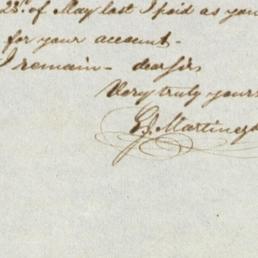 23d. of May last I paid as you
for your account.
I remain - dear Sir
Very truly yours
Martin